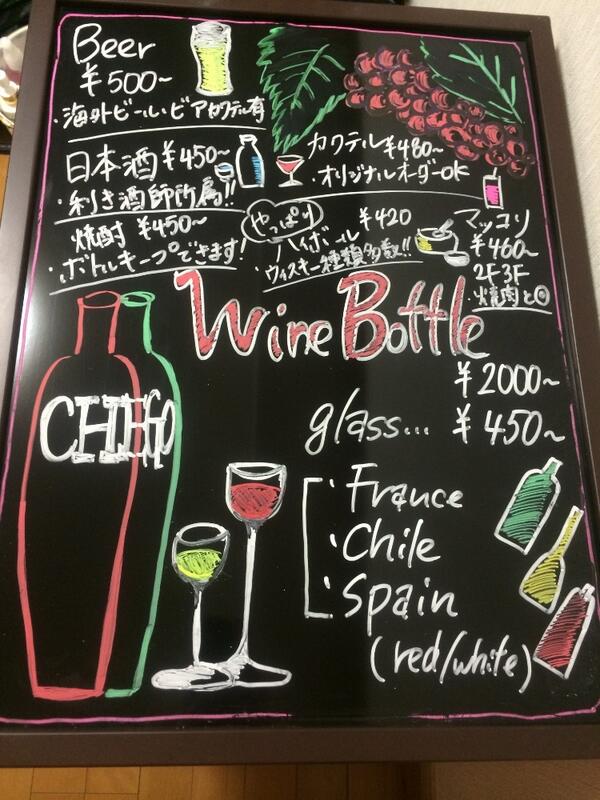 Beer
¥500~
・海外ビール・ビアカクテル有
日本酒 ¥450~
・利き酒師所属!!
焼酎 ¥450~
・ボトルキープできます!
カクテル ¥480~
・オリジナルオーダーOK
やっぱり
ハイボール ¥420
・ウィスキー種類多数!!
マッコリ
¥460~
2F3F
焼肉と◎
Wine Bottle
¥2000~
glass... ¥450~
・France
・Chile
・Spain
(red/white)